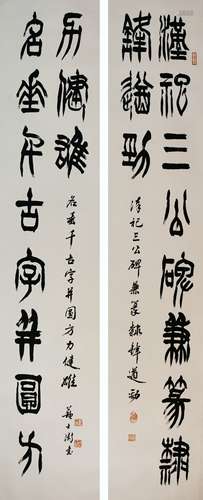 漢祀三公碑兼篆隸
鋒遒勁
漢祀三公碑兼篆隸鋒遒勁
名垂千古字并圓方
力健雄
名垂千古字并圓方力健雄
蘇士澍书